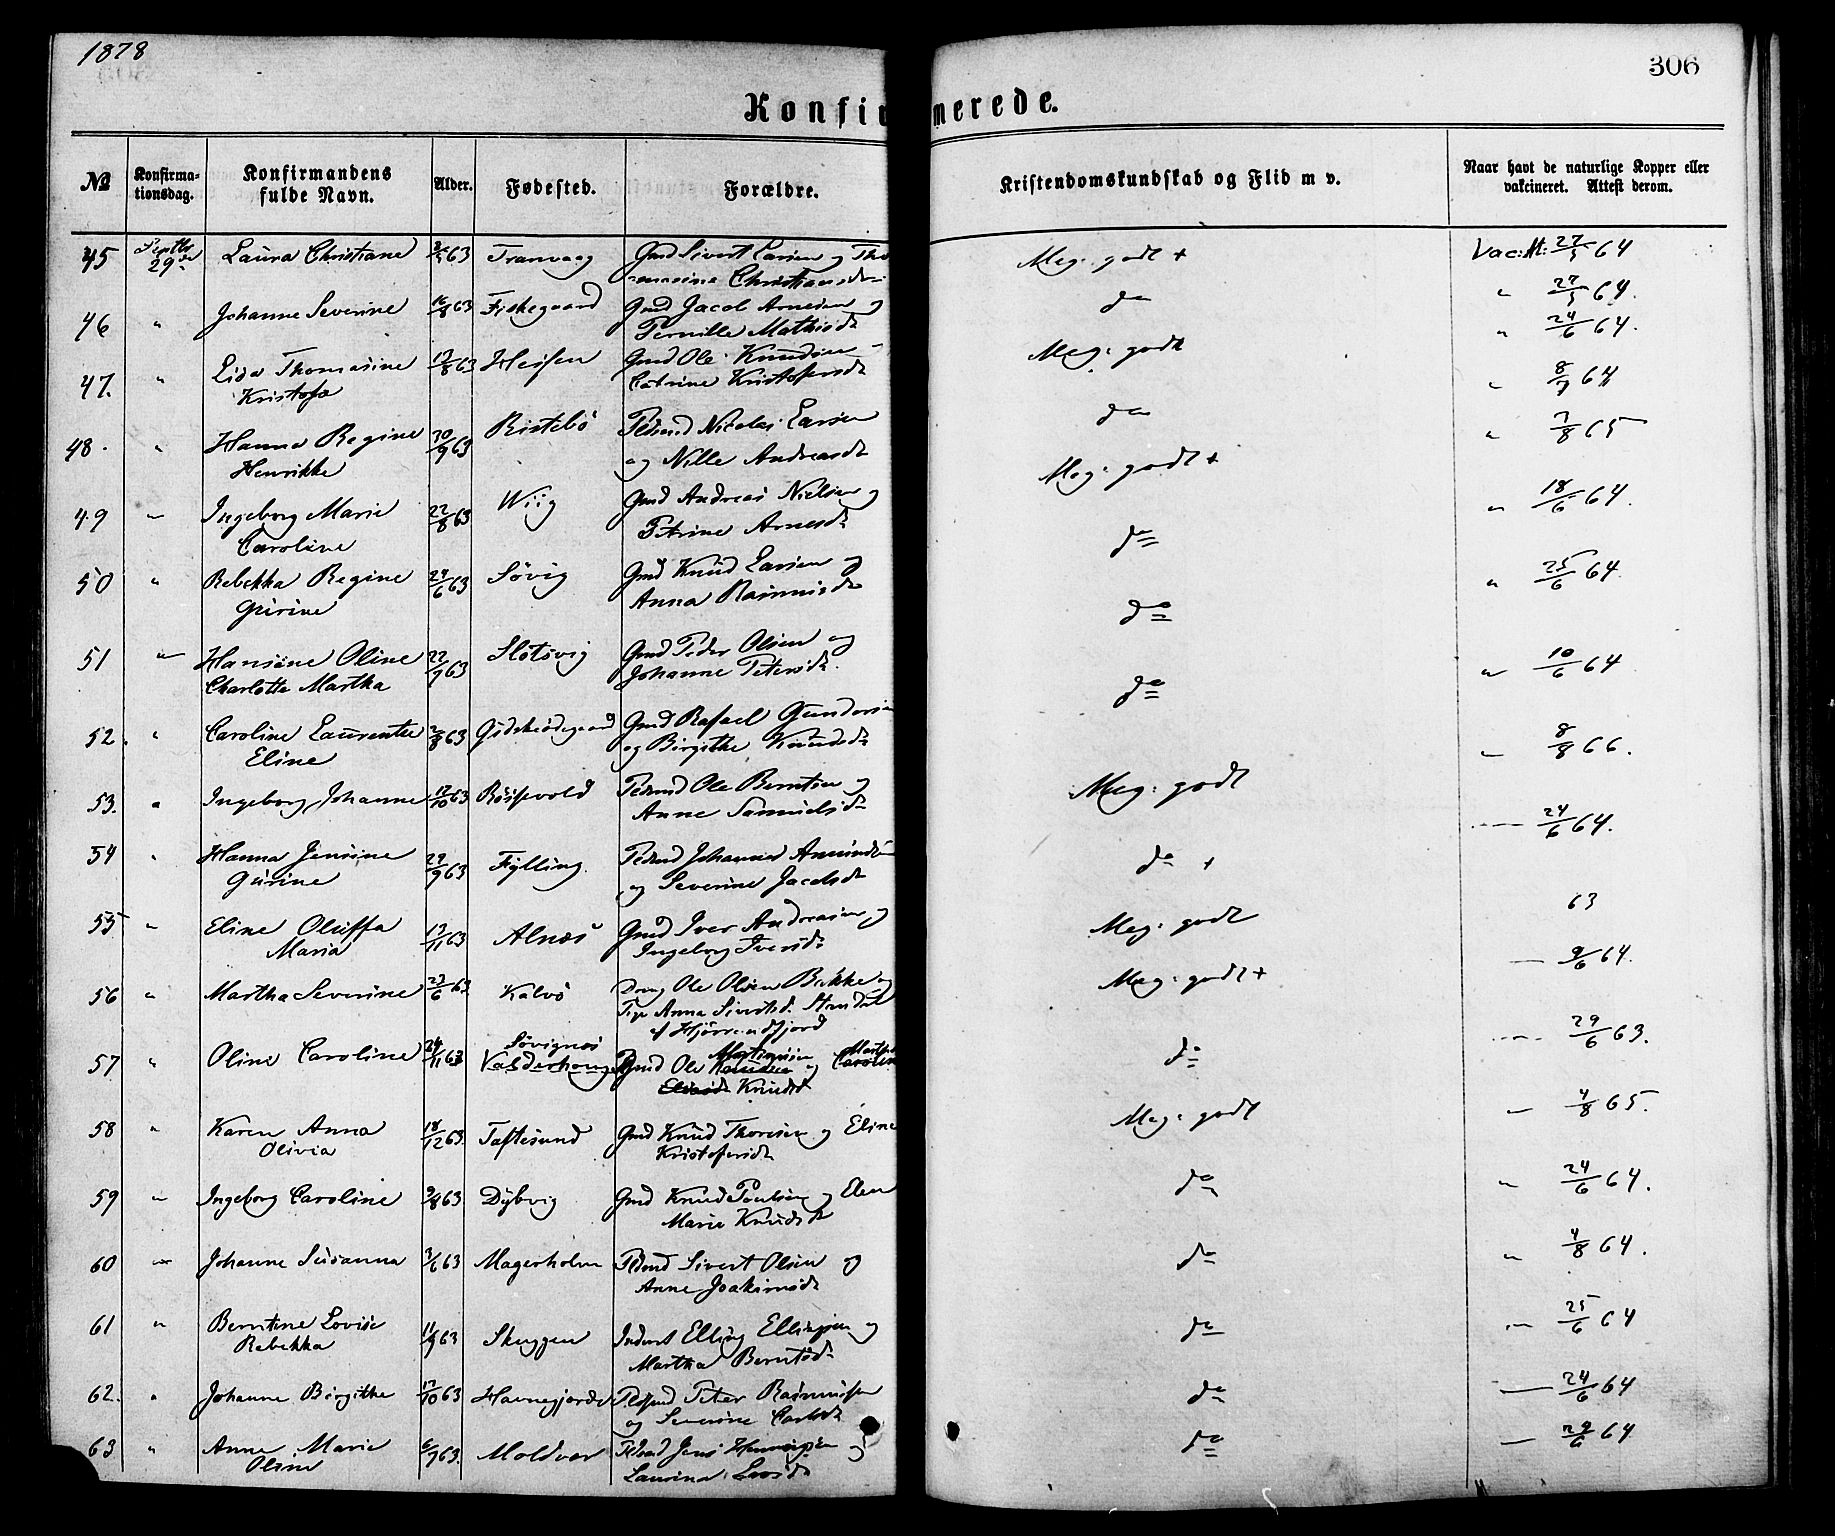 1878
306
Konfirmerede.
№ Konfirma-tionsdag. Konfirmandens fulde Navn. Alder. Fødested. Forældre. Kristendomskundskab og Flid m v. Naar havt de naturlige Kopper eller vakcineret. Attest derom.
45 Septbr 29de Laura Christiane 63 Tranvaag Gmd Sivert Larsen og Tho- Meg: godt + Vac: At: 27/5 64
masine Christiansdr
46 " Johanne Severine 16/8 63 Fiskegaard Gmd Jacob Arnesen og do " 27/5 64.
Pernille Mathisdr
47. " Lisa Thomasine 13/8 63 Hessen Gmd Ole Knudsen Meg: godt " 24/6 64.
Kristofa Catrine Kristofersdr
48. " Hanna Regine 30/9 63 Ristebö Pdmd Nicolai Larsen do " 8/7 64
Henrikke og Nille Andreasdr
49 " Ingeborg Marie 22/8 63 Wiig Gmd Andreas Nielsen og Meg: godt + " 7/8 65
Caroline Petrine Arnesdr
50 " Rebekka Regine 24/6 63 Søvig Gmd Knud Larsen og do " 18/6 64.
Gurine Anna Rasmusdr
51 " Hansine Oline 22/9 63 Slotsvig Gmd Peder Olsen og do " 25/6 64.
Charlotte Martha Johanne Petersdr.
52. " Caroline Laurentse 63 Gidskeödegaard Gmd Rafael Gundersen do " 10/6 64
Eline og Birgithe Knudsdr
53. " Ingeborg Johanne 12/10 63 Røisevold Pdmd Ole Berntsen og Meg: godt " 8/8 66.
Anne Samuelsdr
54 " Hanna Jensine 29/9 63 Fylling. Pdmd Johannes Amundsen do + " 24/6 64.
Gurine og Severine Jacobsdr
55 " Eline Oluffa 13/11 63 Alnæs Gmd Iver Andreasen og Meg: godt 63
Maria Ingeborg Iversdr
56 " Martha Severine 23/6 63 Kalvö Drng Ole Olsen Bakke og Meg: godt + " 9/6 64.
Pige Anna Sivertsd. Standal
af Hjørrendfjord
57 " Oline Caroline 24/11 63 Søvignæs Valderhoug Gmd Ole Martinusen og do " 29/6 63.
Knudsdr
58 " Karen Anna 18/12 63. Taftesund Gmd Knud Thoresen og Eline Meg: godt " 4/8 65.
Olivia Kristofersdr
59 " Ingeborg Caroline 9/8 63 Dybvig Gmd Knud Poulsen og Elen do " 24/6 64.
Marie Knudsdr
60 " Johanne Susanna 3/6 63 Magerholm Pdmd Sivert Olsen og do " 4/8 64.
Anne Joakimsdr
61 " Berntine Lovise 11/9 63 Skuggen Inderst Elling Ellingsen og do " 25/6 64
Rebekka Martha Berntsdr
62. " Johanne Birgithe 17/10 63 Havnegjorde Peter Rasmussen do " 24/6 64
og Severine Carlsdr
63 " Anne Marie 6/9 63. Moldvær Pdmd Jens Henningsen og do " 29/6 64
Oline Laurina Larsdr